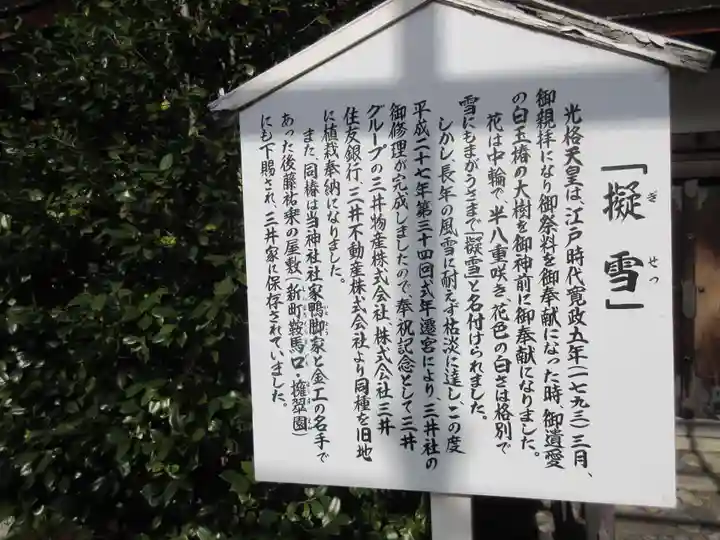 「擬雪」
ぎせつ
光格天皇は、江戸時代寛政五年(一七九三)三月、
御親拝になり御祭料を御奉献になった時、御遺愛
の白玉椿の大樹を御神前に御奉献になりました。
花は中輪で、半八重咲き、花色の白さは格別で
雪にもまがうさまで「擬雪」と名付けられました。
しかし、長年の風雪に耐えず枯淡に達し、この度
平成二十七年第三十四回式年遷宮により、三井社の
御修理が完成しましたので、奉祝記念として三井
グループの三井物産株式会社、株式会社三井
住友銀行、三井不動産株式会社より同種を旧地
に植栽奉納になりました。
また、同椿は当神社社家鴨脚家と金工の名手で
あった後藤祐乗の屋敷(新町鞍馬口・擁翠園)
にも下賜され、三井家に保存されていました。